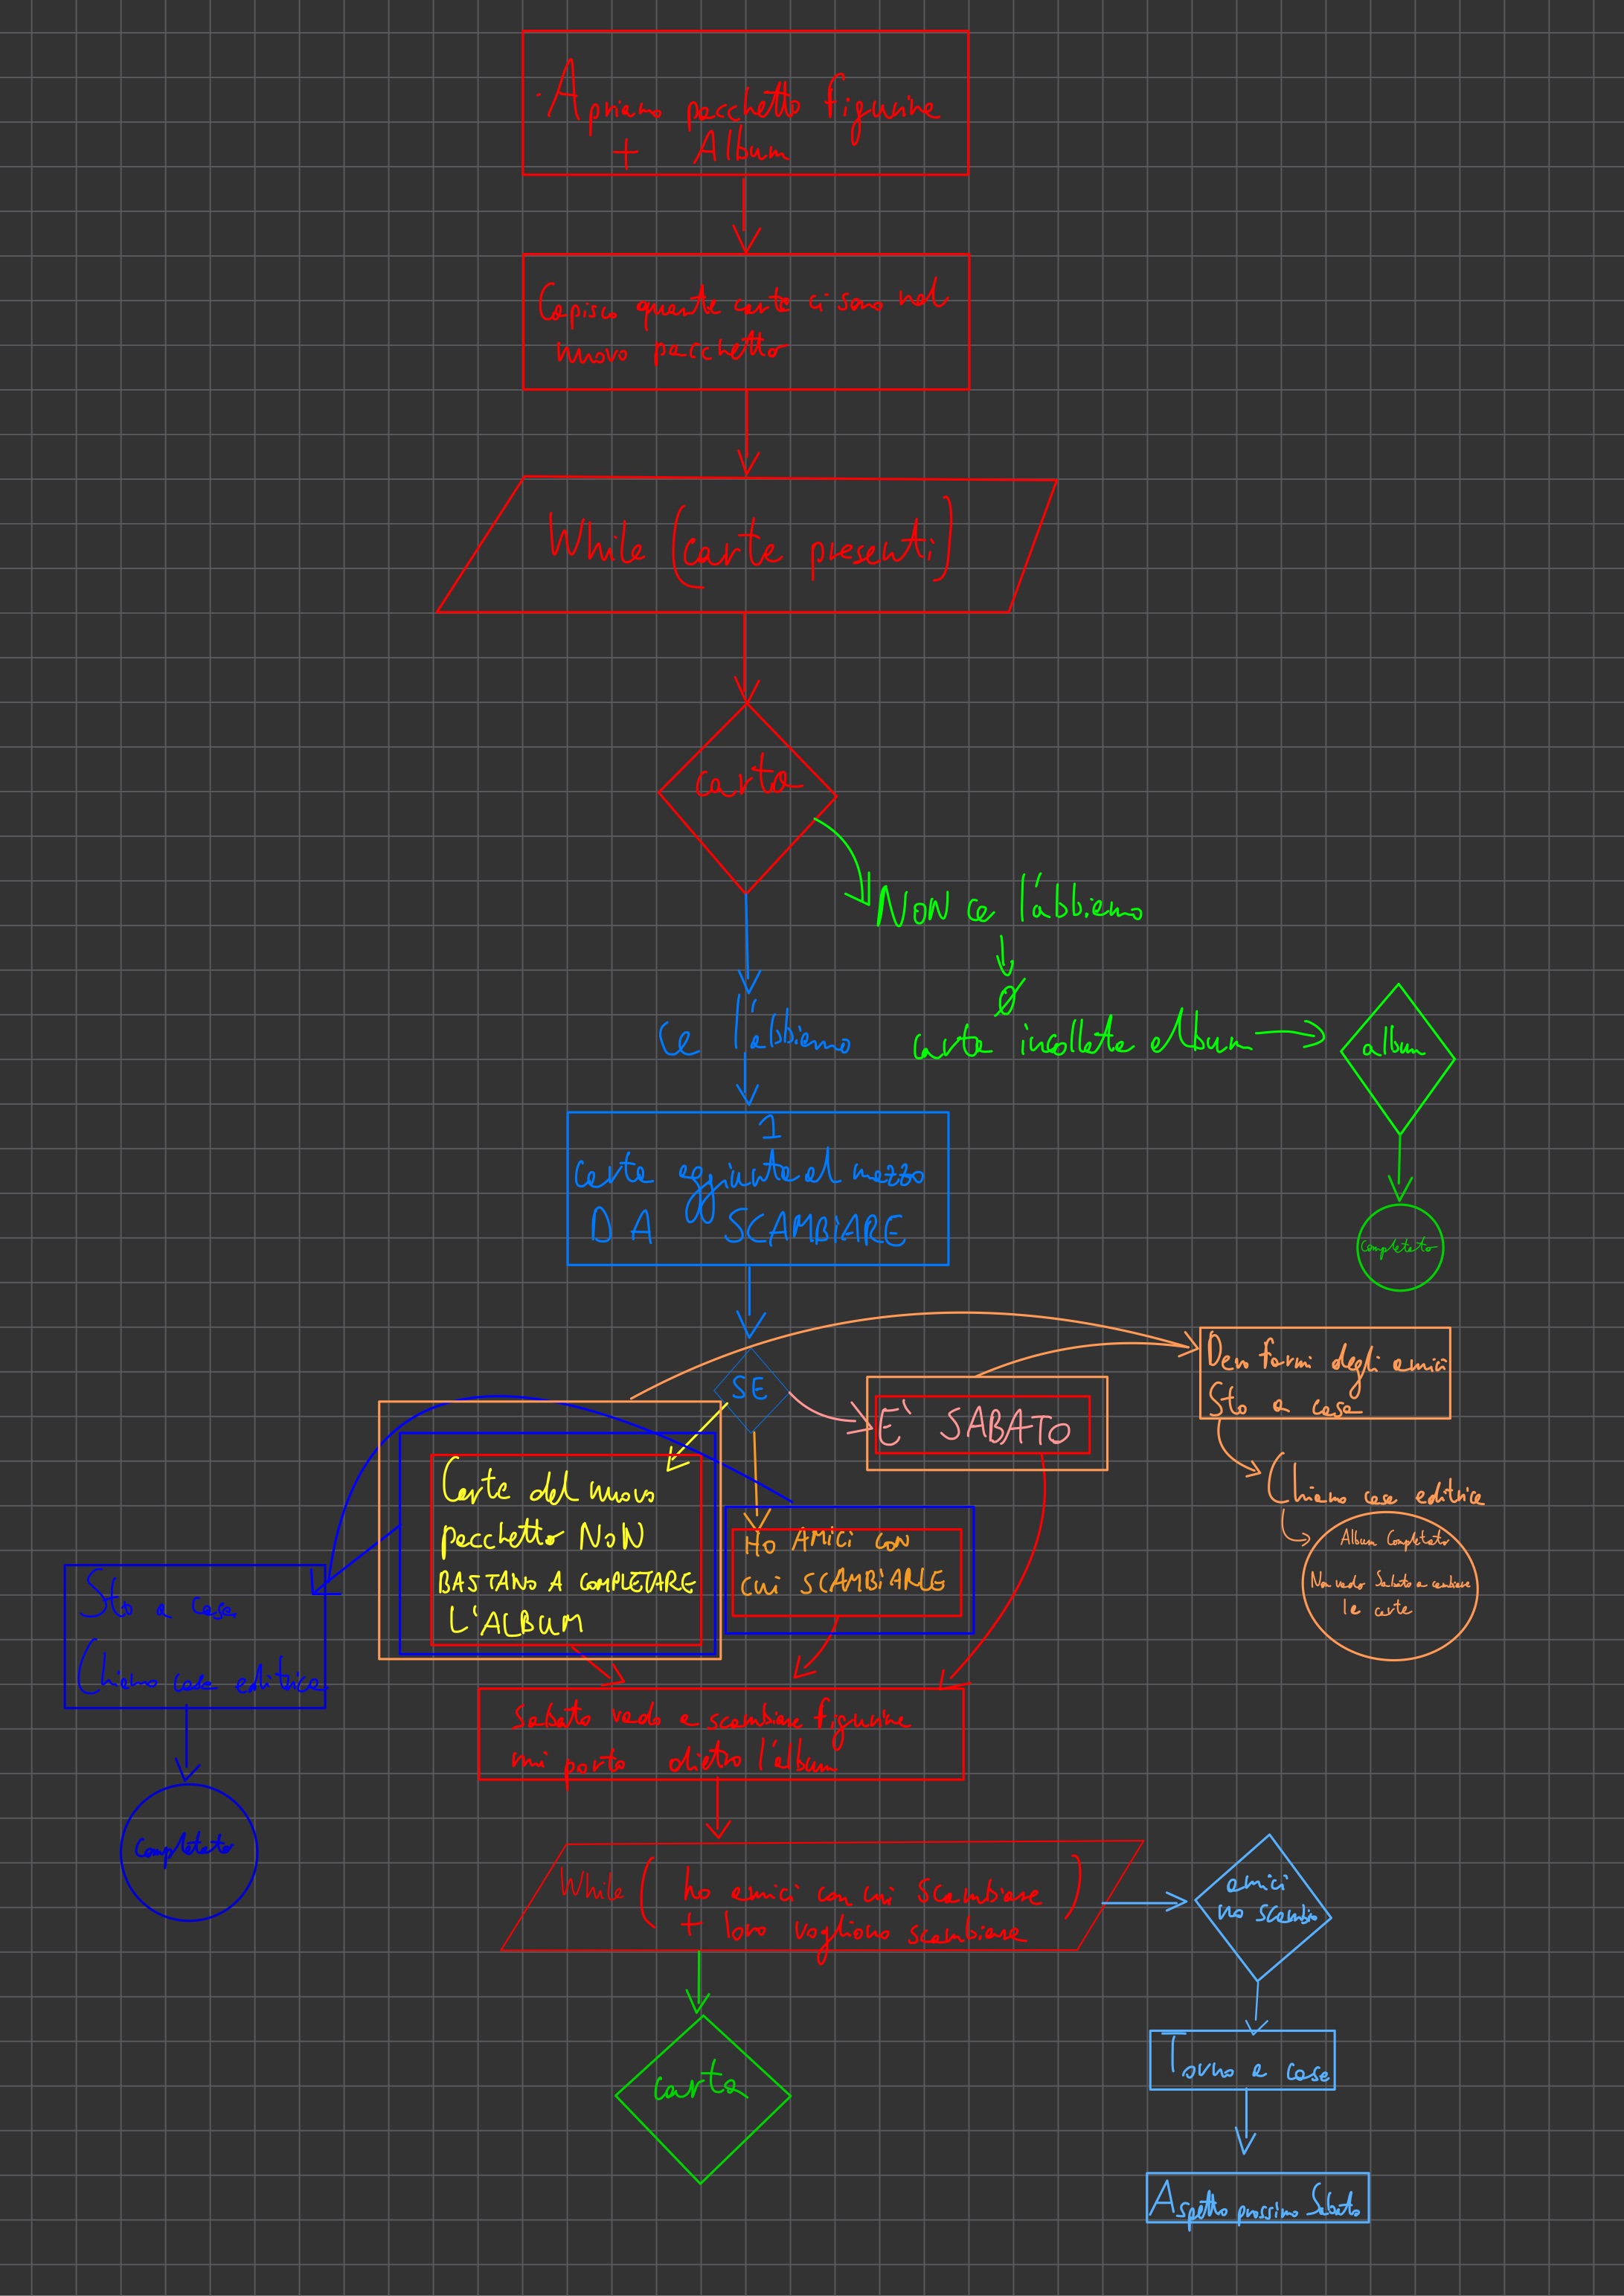 Apriamo pacchetto figurine
+ Album
Capisco quante carte ci sono nel
nuovo pacchetto
While (carte presenti)
carta
NON ce l'abbiamo
0
carta incollata album
album
Completato
Ce l'abbiamo
1
Carta aggiunta al mazzo
DA SCAMBIARE
SE
E' SABATO
Devo farmi degli amici
Sto a casa
Chiamo casa editrice
Album Completato
Non vado Sabato a cambiare
le carte
Carte del nuovo
pacchetto NON
BASTANO A COMPLETARE
L'ALBUM
HO AMICI CON
CUI SCAMBIARLE
Sto a casa
Chiamo casa editrice
Completato
Sabato vado a scambiare figurine
mi porto dietro l'album
While ( ho amici con cui scambiare
+ loro vogliono scambiare )
amici
no scambio
Torno a casa
Aspetto prossimo Sabato
carta